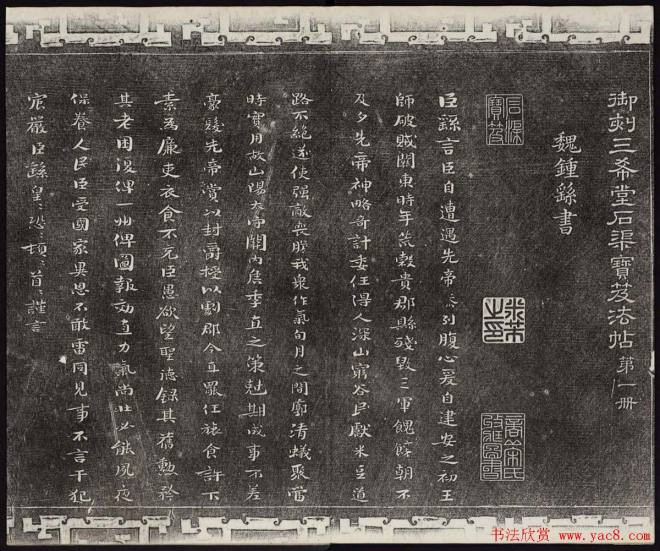 御刻三希堂石渠寶笈法帖第一冊
魏鍾繇書
石渠寶笈
臣繇言臣自遭遇先帝忝列腹心爰自建安之初王
師破賊關東時年荒穀貴郡縣殘毀三軍餽饟朝不
及夕先帝神略奇計委任得人深山窮谷民獻米豆道
路不絕遂使強敵喪膽我衆作氣旬月之間廓清蟻聚當
時實用故山陽太守關內侯季直之策尅期成事不差
豪髮先帝賞以封爵授以劇郡今直罷任旅食許下
素爲廉吏衣食不充臣愚欲望聖德錄其舊勳矜
其老困復俾一州俾圖報効直力氣尚壯必能夙夜
保養人民臣受國家異恩不敢雷同見事不言干犯
宸嚴臣繇皇〻恐〻頓〻首〻謹言
书法欣赏 www.yac8.com